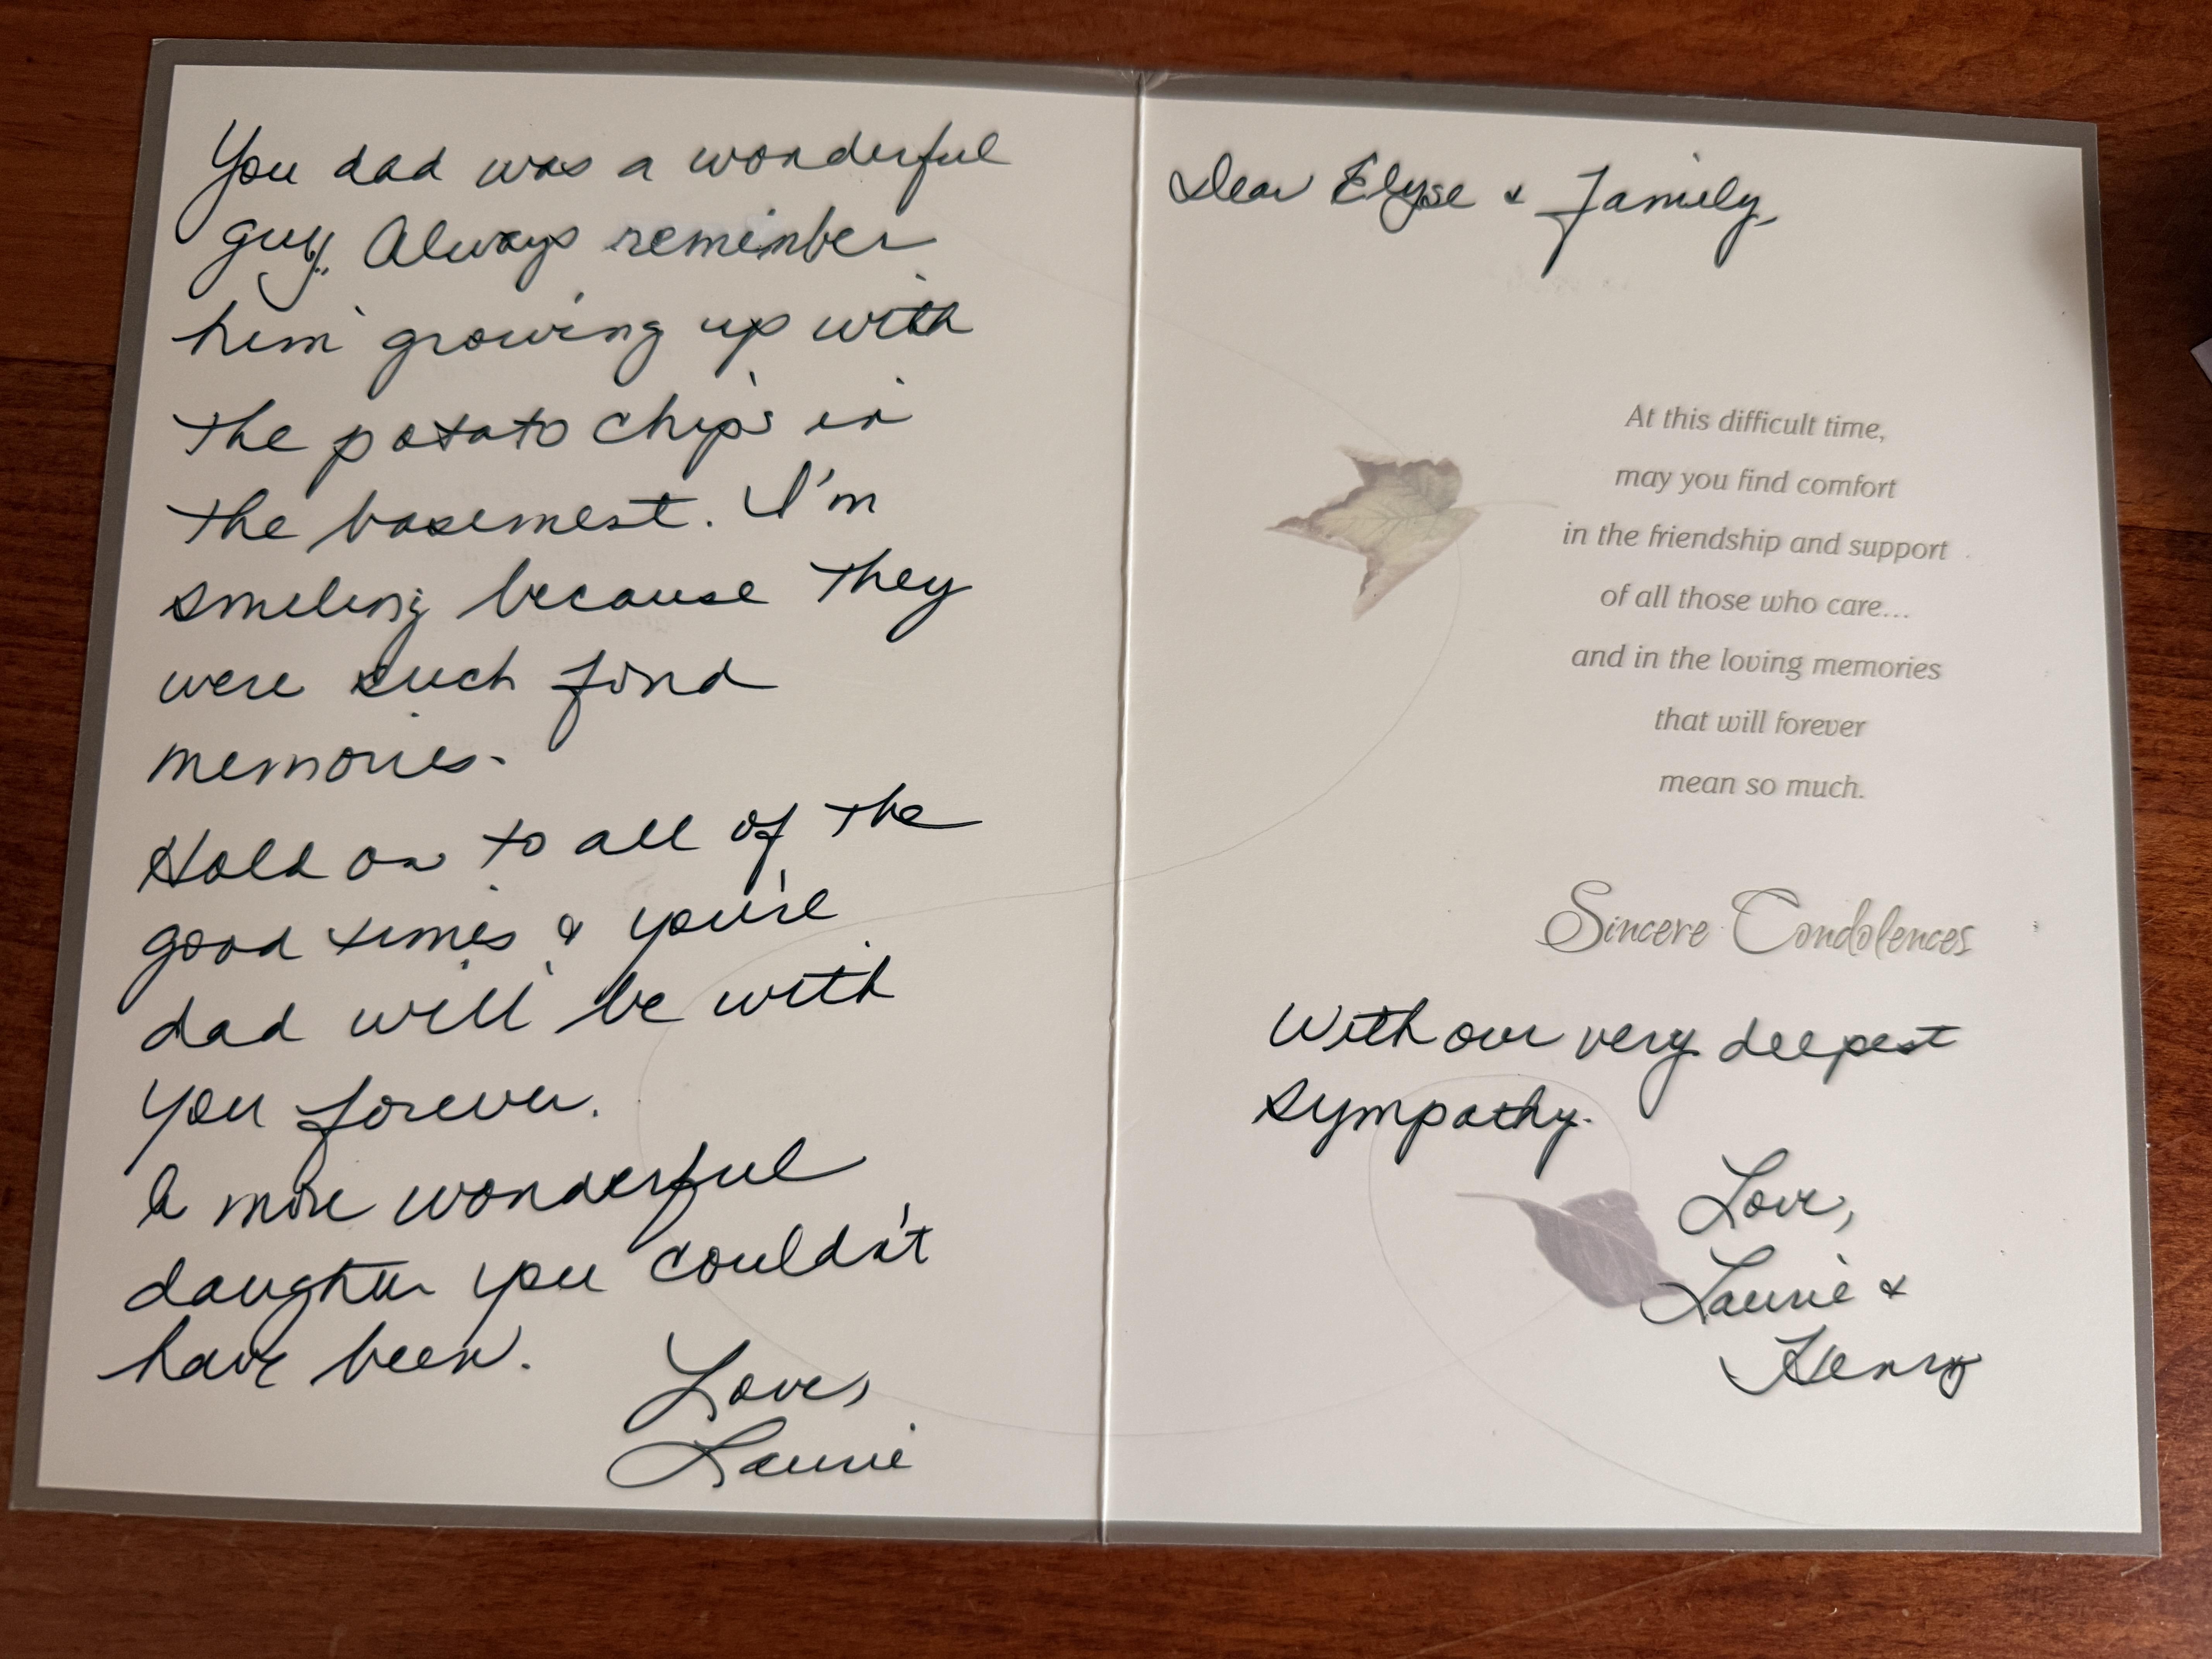 You dad was a wonderful
guy. Always remember
him growing up with
the potato chips in
the basement. I'm
smiling because they
were such fond
memories.
Hold on to all of the
good times & you're
dad will be with
you forever.
A more wonderful
daughter you couldn't
have been.
Love,
Laurie
Dear Elyse & Family,
At this difficult time,
may you find comfort
in the friendship and support
of all those who care...
and in the loving memories
that will forever
mean so much.
Sincere Condolences
With our very deepest
sympathy.
Love,
Laurie &
Henry